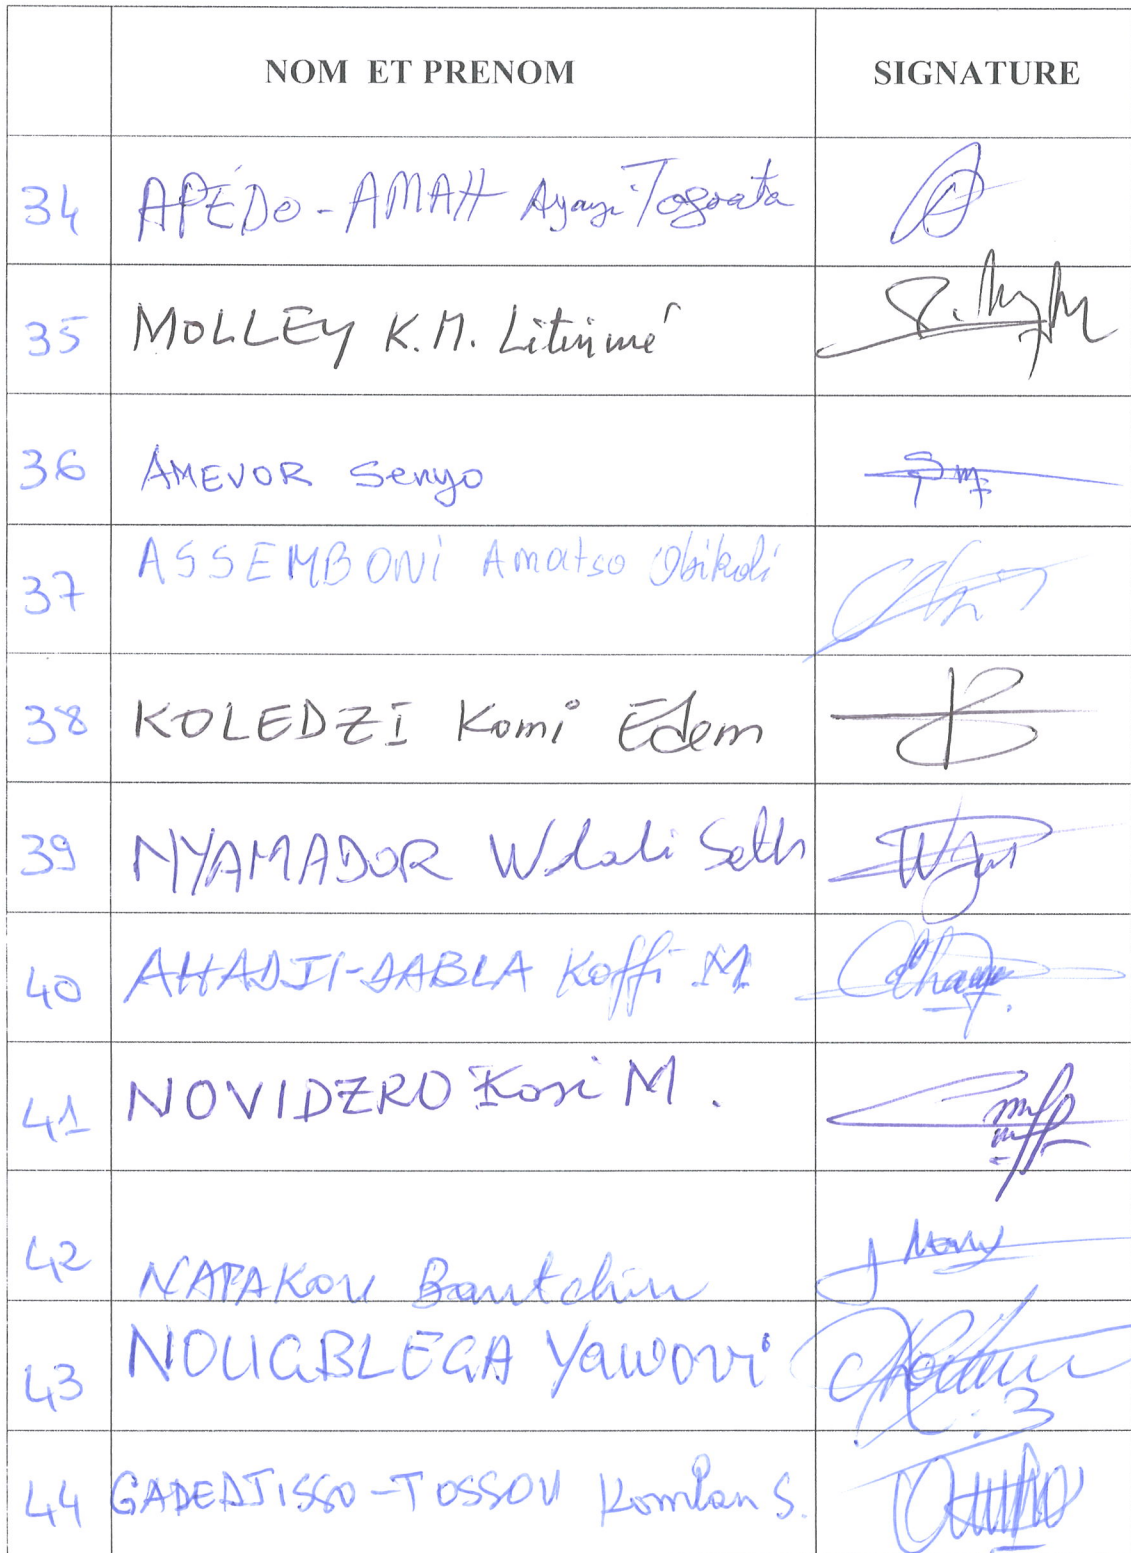 NOM ET PRENOM SIGNATURE
34 APÉDO-AMAH Ayayi Togoata
35 MOLLEY K.M. Litinmé
36 AMEVOR Senyo
37 ASSEMBONI Amatso Obikoli
38 KOLEDZI Komi Edem
39 NYAMADOR Wolali Seth
40 AHADJI-DABLA Koffi M
41 NOVIDZRO Kosi M.
42 NAPAKOU Bantchin
43 NOUGBLEGA Yawovi
44 GADEDJISSO-TOSSOU Komlan S.